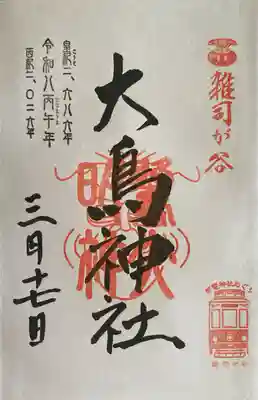 雑司が谷
大鳥神社
皇紀二、六八六年
令和八丙午年
西暦二、〇二六年
三月十七日